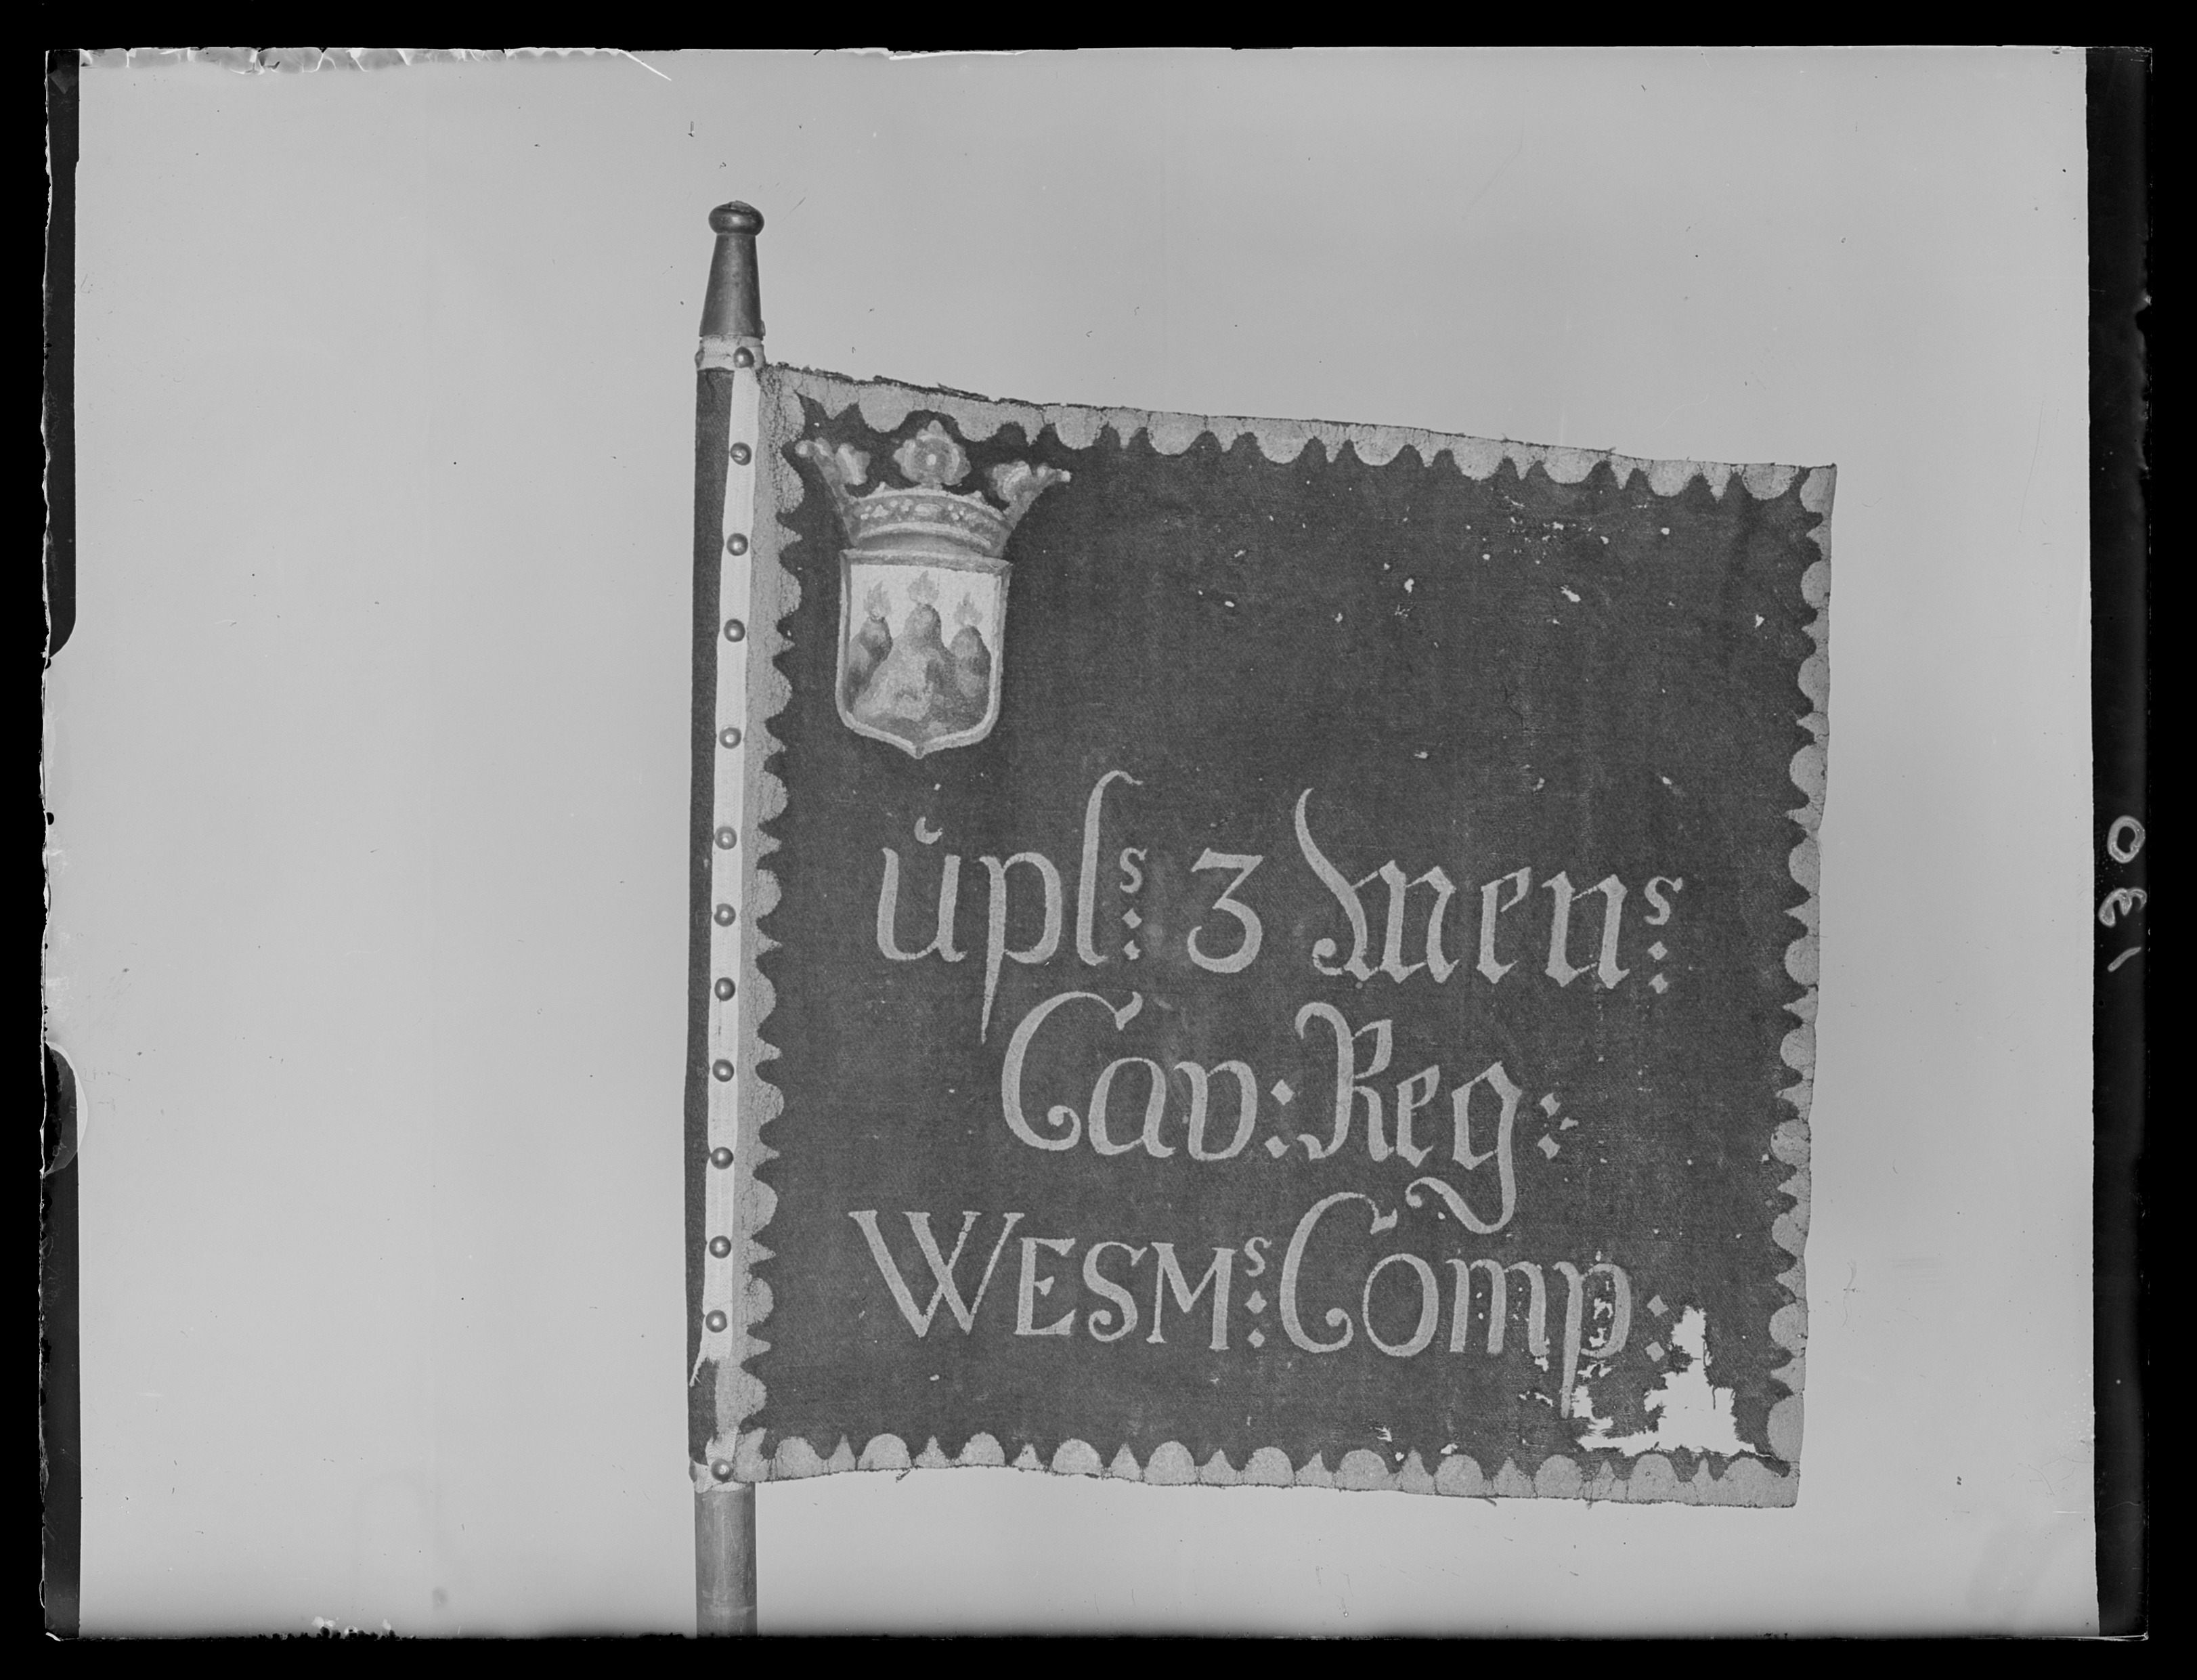 ŭpl^s: 3 Men^s:
Cav: Reg:
WESM^s: Comp:
130